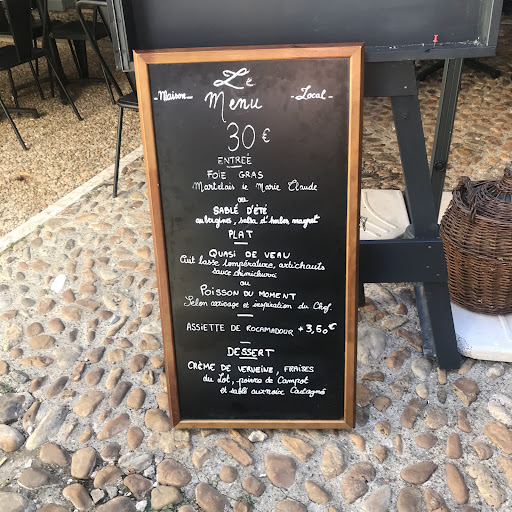 Le
-Maison- Menu -Local-
30 €
ENTRÉE
FOIE GRAS
Martelais de Marie Claude
ou
SABLÉ D'ÉTÉ
aubergines, salsa d'herbes, magret
PLAT
QUASI DE VEAU
Cuit basse température, artichauts
sauce chimichurri
ou
POISSON DU MOMENT
Selon arrivage et inspiration du Chef.
ASSIETTE DE ROCAMADOUR +3,50€
DESSERT
CRÈME DE VERVEINE, FRAISES
du Lot, poivre de Kampot
et sablé aux noix